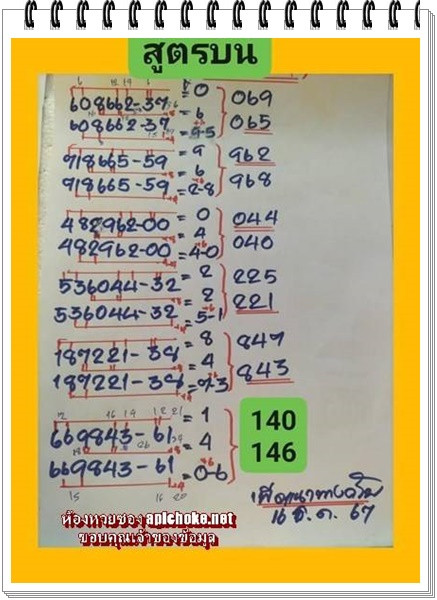 สูตรบน
608662-39 = 0
= 6
608662-39 = 9-5
069
065
918665-59 = 9
= 6
918665-59 = 2-8
962
968
482962-00 = 0
= 4
482962-00 = 4-0
044
040
536044-32 = 2
= 2
536044-32 = 5-1
225
221
187221-38 = 8
= 4
187221-38 = 9-3
849
843
12 16 19 12 21
669843-61 = 1
= 4
669843-61 = 0-6
15 16 20
140
146
16 ธ.ค. 67
ห้องหวยซอง aplchoke.net
ขอบคุณเจ้าของข้อมูล